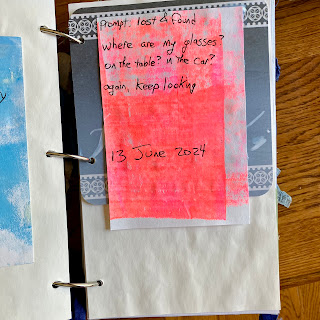 Prompt: lost & found
Where are my glasses?
On the table? In the car?
again, keep looking
13 June 2024